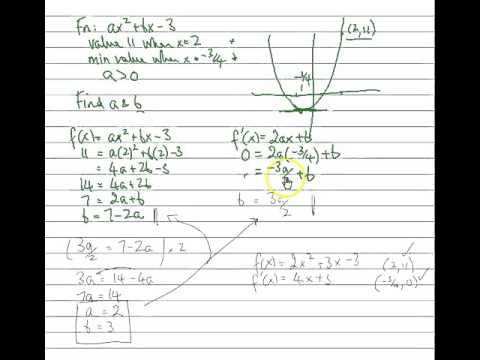 Fn: ax² + bx - 3
value 11 when x=2
min value when x=-3/4
a>0
Find a & b
(2,11)
-3/4
f(x) = ax² + bx - 3
11 = a(2)² + b(2) - 3
= 4a + 2b - 3
14 = 4a + 2b
7 = 2a + b
b = 7 - 2a
f'(x) = 2ax + b
0 = 2a(-3/4) + b
= -3a/2 + b
b = 3a/2
(3a/2 = 7 - 2a) × 2
3a = 14 - 4a
7a = 14
a = 2
b = 3
f(x) = 2x² + 3x - 3 (2,11) ✓
f'(x) = 4x + 3 (-3/4, 0) ✓